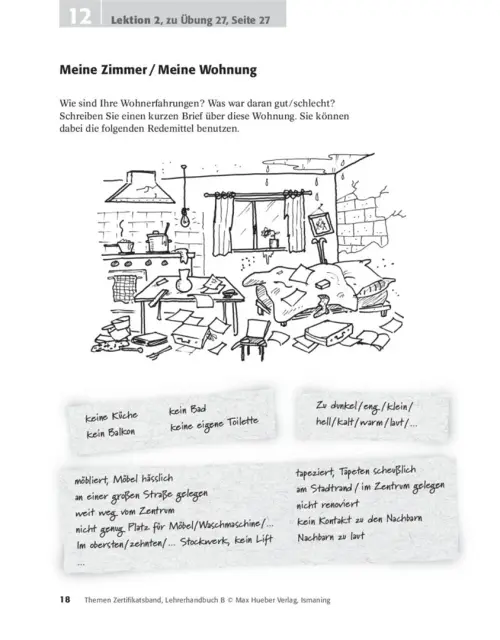 12
Lektion 2, zu Übung 27, Seite 27
Meine Zimmer / Meine Wohnung
Wie sind Ihre Wohnerfahrungen? Was war daran gut/schlecht?
Schreiben Sie einen kurzen Brief über diese Wohnung. Sie können
dabei die folgenden Redemittel benutzen.
keine Küche
kein Bad
kein Balkon
keine eigene Toilette
Zu dunkel/eng/klein/
hell/kalt/warm/laut/...
möbliert, Möbel hässlich
an einer großen Straße gelegen
weit weg vom Zentrum
nicht genug Platz für Möbel/Waschmaschine/...
Im obersten/zehnten/... Stockwerk, kein Lift
....
tapeziert, Tapeten scheußlich
am Stadtrand / im Zentrum gelegen
nicht renoviert
kein Kontakt zu den Nachbarn
Nachbarn zu laut
18 Themen Zertifikatsband, Lehrerhandbuch B © Max Hueber Verlag, Ismaning